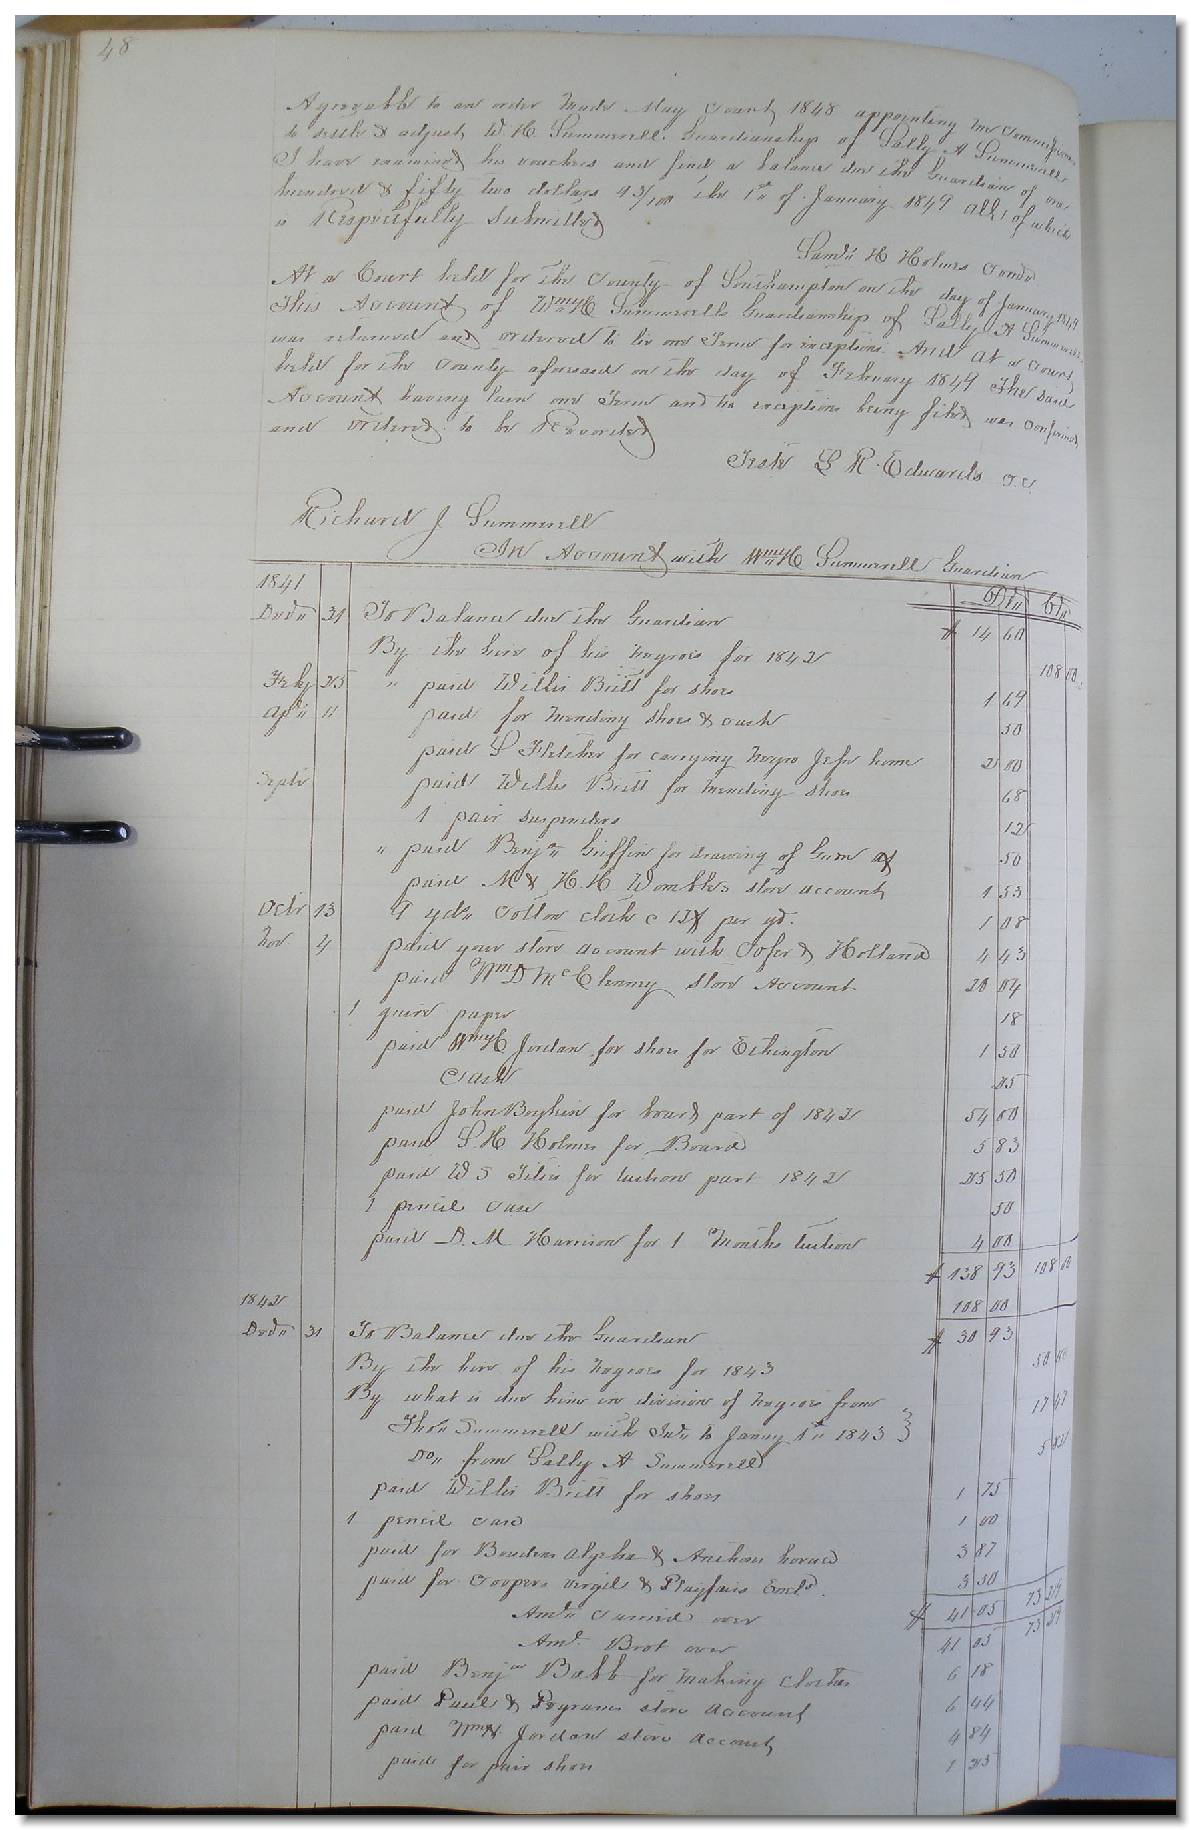 48
Agreeable to an order made May Court 1848 appointing me Commissioner
to settle & adjust W. H. Summerell Guardianship of Sally A Summerell
I have examined his vouchers and find a balance due the Guardian of one
hundred & fifty two dollars 43/100 the 1st of January 1849 all of which
is Respectfully Submitted
Saml H Holmes Comr
At a Court held for the County of Southampton on the day of January 1849
This Account of Wm H Summerells Guardianship of Sally A Summerell
was returned and ordered to lie one Term for exceptions. And At a Court
held for the County aforesaid on the day of February 1849 The said
Account having lain one Term and no exceptions being filed was confirmed
and Ordered to be Recorded
Teste L R Edwards C.C.
Richard J Summerell
In Account with Wm H Summerell Guardian
1841 Dr Cr
Decr 31 To Balance due the Guardian $ 14 60
By the hire of his negroes for 1842 108 00
Feby 25 " paid Willis Britt for shoes 1 69
Apl 11 paid for mending shoes & cash 50
paid L Fletcher for carrying negro home 2 00
Septr paid Willis Britt for mending shoes 68
1 pair suspenders 12
" paid Benjn Griffin for drawing of Gum 50
paid M & H. H. Wombles store account 1 53
Octr 13 9 yds cotton cloth c 12 per yd. 1 08
Nov 4 paid your store account with Cofer & Holland 4 43
paid Wm D McClenny store Account 20 04
1 quire paper 18
paid Wm H Jordan for shoes for Ethington 1 50
Cash 25
paid John Boykin for board part of 1842 54 00
paid S. H Holmes for Board 5 83
paid W S for tuition part 1842 25 50
1 pencil case 50
paid D. M Harrison for 1 Months tuition 4 00
$ 138 93 108 00
1842 108 00
Decr 31 To Balance due the Guardian $ 30 93
By the hire of his negroes for 1843 50 00
By what is due him in division of negroes from
Thos Summerell with Int to Janny 1st 1843 } 17 47
Do from Sally A Summerell 5 82
paid Willis Britt for shoes 1 75
1 pencil case 1 00
paid for Alpha & 3 87
paid for Coopers virgil & Playfairs Eucld. 3 50
Amt Carried over $ 41 05 73 29
Amt. Brot over 41 05 73 29
paid Benjn Babb for making clothes 6 18
paid Paul & Pegrams store account 6 44
paid Wm H. Jordan store account 4 84
paid for pair shoes 1 25